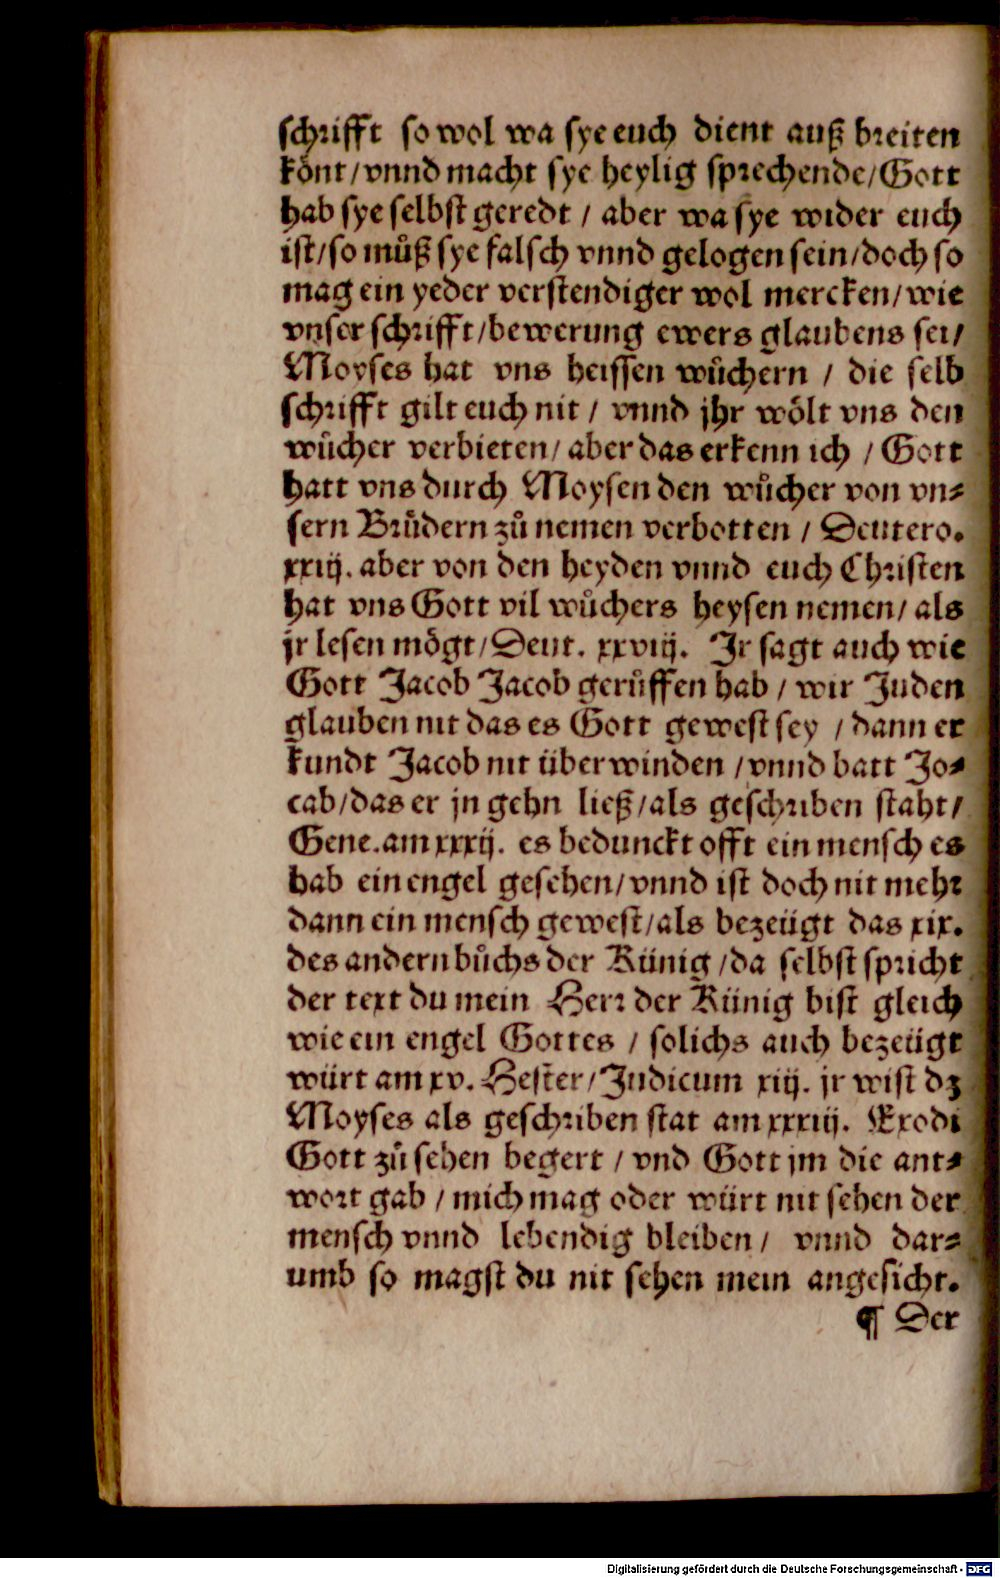 schrifft so wol wa sye euch dient auß breiten
könt/vnnd macht sye heylig sprechende/Gott
hab sye selbst geredt / aber wa sye wider euch
ist/so můß sye falsch vnnd gelogen sein/doch so
mag ein yeder verstendiger wol mercken/wie
vnser schrifft/bewerung ewers glaubens sei/
Moyses hat vns heissen wůchern / die selb
schrifft gilt euch nit / vnnd jhr wölt vns den
wůcher verbieten/ aber das erkenn ich / Gott
hatt vns durch Moysen den wůcher von vn⸗
sern Brůdern zů nemen verbotten / Deutero.
xxiij. aber von den heyden vnnd euch Christen
hat vns Gott vil wůchers heysen nemen/ als
jr lesen mögt/Deut. xxviij. Ir sagt auch wie
Gott Jacob Jacob gerůffen hab / wir Juden
glauben nit das es Gott gewest sey / dann er
kundt Jacob nit überwinden /vnnd batt Jo⸗
cab/das er jn gehn ließ/als geschriben staht/
Gene.am xxxij. es bedunckt offt ein mensch es
hab ein engel gesehen/vnnd ist doch nit mehr
dann ein mensch gewest/als bezeügt das xix.
des andern bůchs der Künig /da selbst spricht
der text du mein Herr der Künig bist gleich
wie ein engel Gottes / solichs auch bezeügt
würt am xv. Hester/Judicum xiij. jr wist dz
Moyses als geschriben stat am xxxiij. Exodi
Gott zů sehen begert / vnd Gott jm die ant⸗
wort gab / mich mag oder würt nit sehen der
mensch vnnd lebendig bleiben/ vnnd dar⸗
umb so magst du nit sehen mein angesicht.
¶ Der
Digitalisierung gefördert durch die Deutsche Forschungsgemeinschaft - DFG